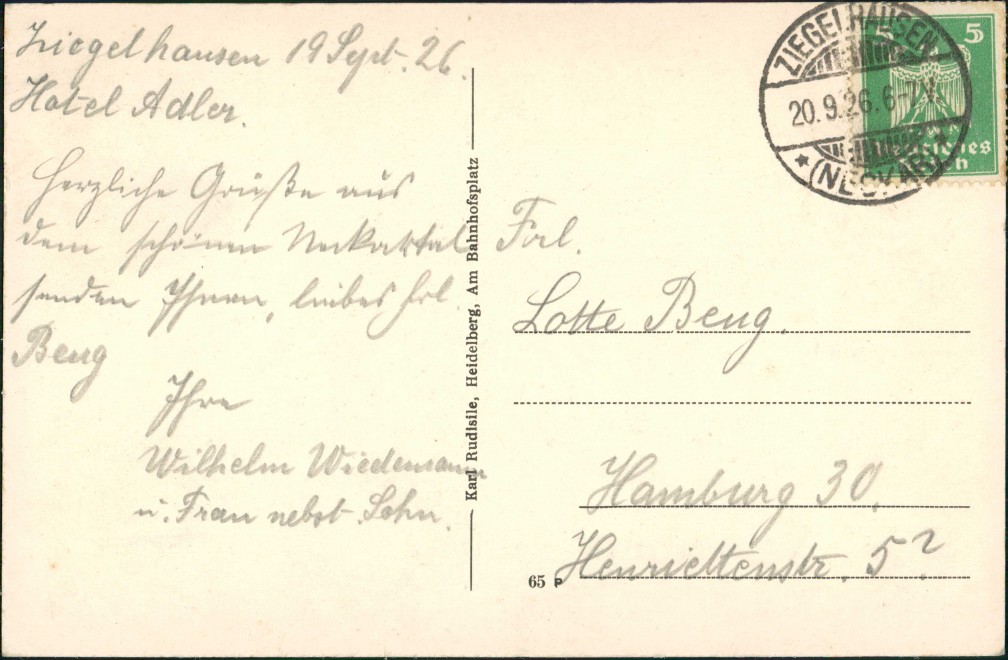 Ziegelhausen 19 Sept. 26.
Hotel Adler.
Herzliche Grüße aus
dem schönen Neckartal
senden Ihnen, liebes Frl.
Beug
Ihre
Wilhelm Wiedemann
u. Frau nebst Sohn.
Karl Rudisile, Heidelberg, Am Bahnhofsplatz
ZIEGELHAUSEN
20.9.26.6-7N.
(NECKAR)
5
Frl.
Lotte Beug.
Hamburg 30.
Henriettenstr. 5?
65 P